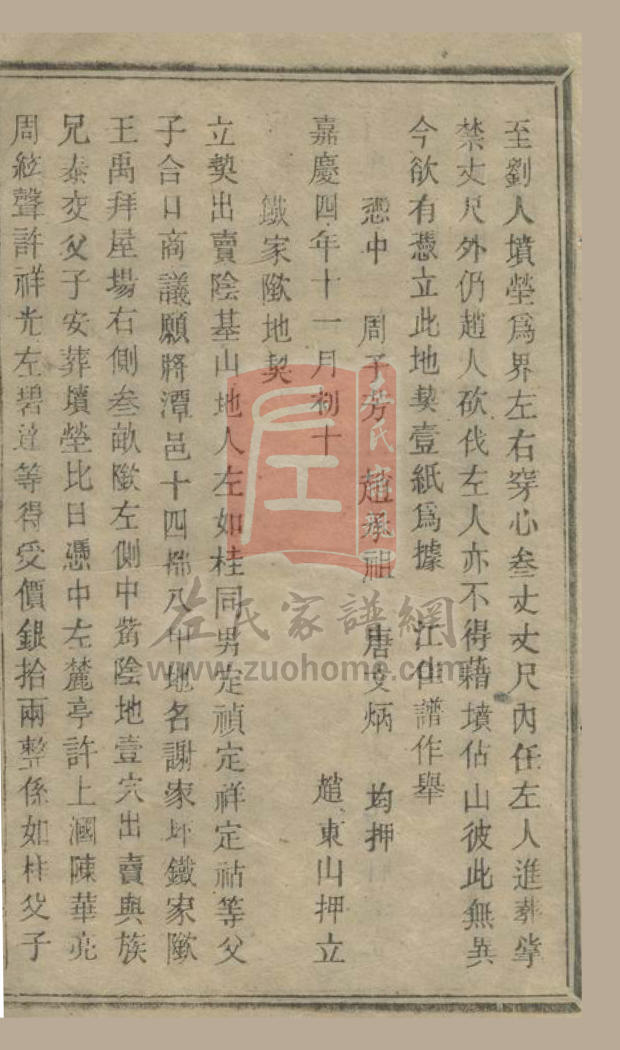 至劉人墳塋爲界左右穿心叁丈丈尺內任左人進葬
禁丈尺外仍趙人砍伐左人亦不得藉墳佔山彼此無異
今欲有憑立此地契壹紙爲據 江佳譜作舉
憑中 周子芳 趙承祖 唐文炳 均押
嘉慶四年十一月初十 趙東山押立
鐵家隞地契
立契出賣陰基山地人左如桂同男定禎定祥定祜等父
子合口商議願將潭邑十四都八甲地名謝家坪鐵家隞
王禹拜屋場右側叁畝隞左側中嘴陰地壹穴出賣與族
兄泰交父子安葬墳塋比日憑中左麓亭許上國陳華亮
周絃聲許祥光左碧達等得受價銀拾兩整係如桂父子
左氏家譜網
www.zuohome.com